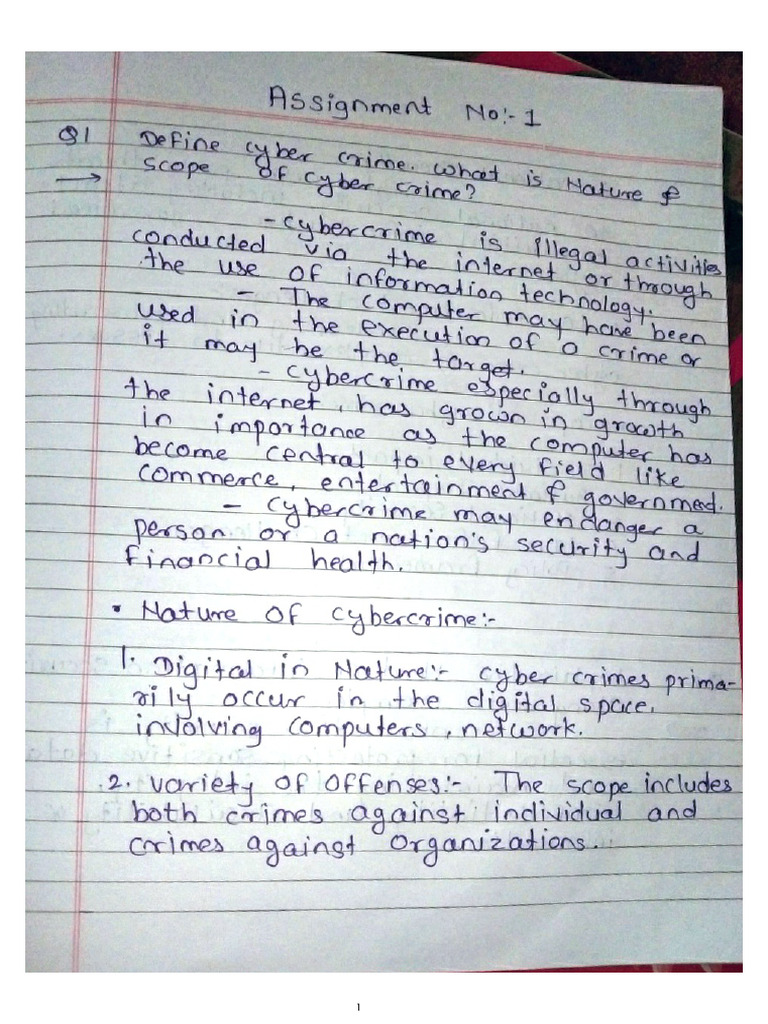 Assignment No:- 1
Q1 Define cyber crime. What is Nature &
scope of cyber crime?
→ - cybercrime is illegal activities
conducted via the internet or through
the use of information technology.
- The computer may have been
used in the execution of a crime or
it may be the target.
- cybercrime especially through
the internet, has grown in growth
in importance as the computer has
become central to every field like
commerce, entertainment & governmed.
- cybercrime may endanger a
person or a nation's security and
financial health.
• Nature of cybercrime:-
1. Digital in Nature:- cyber crimes prima-
rily occur in the digital space,
involving computers, network.
2. variety of offenses:- The scope includes
both crimes against individual and
crimes against organizations.
1